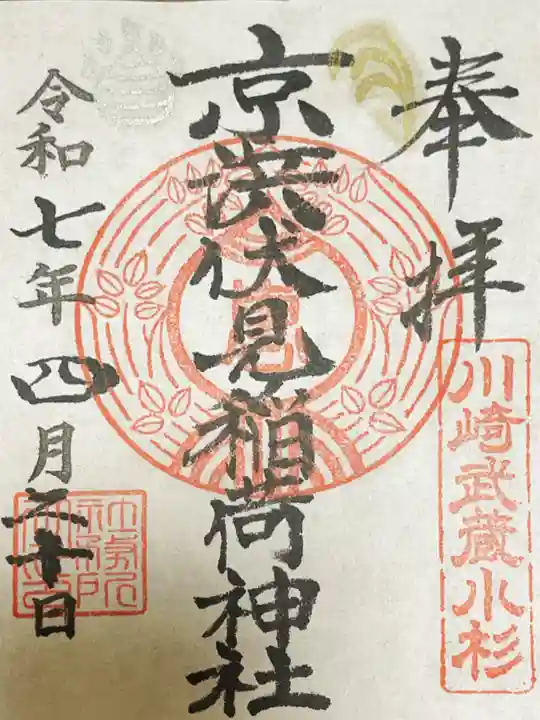 奉拝
川崎武蔵小杉
京濱伏見稲荷神社
令和七年四月二十日